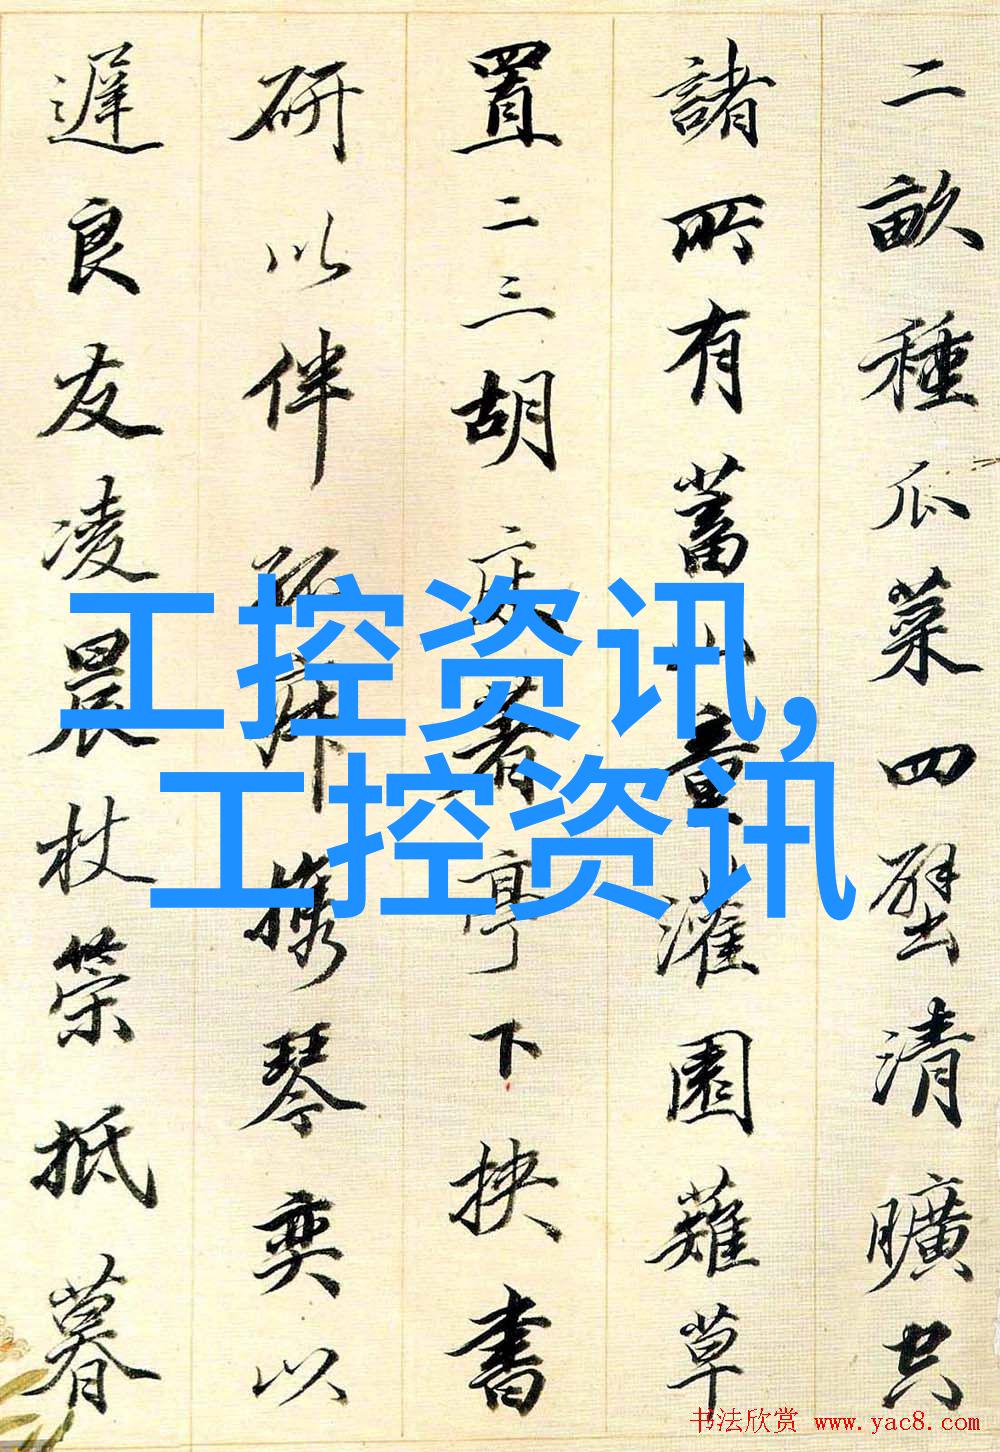 二畝種瓜菜四壁清曠空
諸所有蓄山童灌園薙草
置二三胡床著亭下挾書
研以伴孤寂攜琴奕以
遲良友凌晨杖策抵暮
工控资讯,
工控资讯
书法欣赏 www.yac8.com